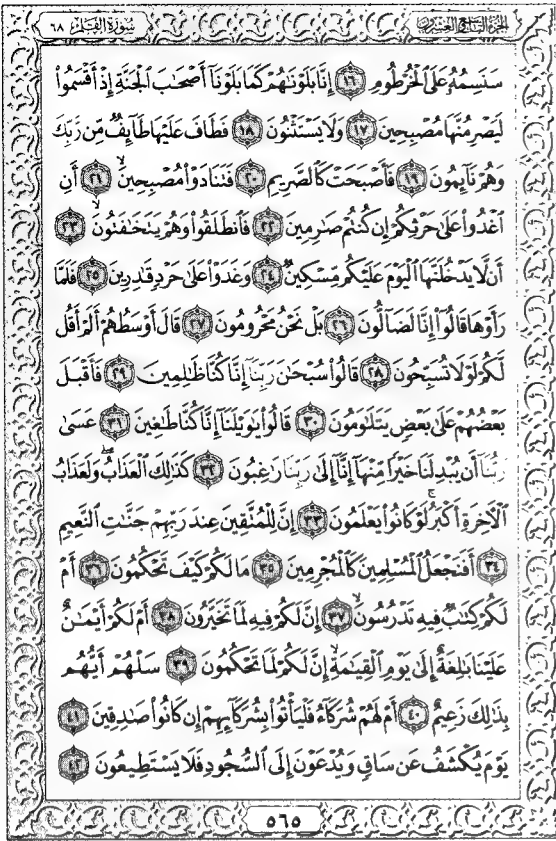 الجزء التاسع والعشرون سورة القلم ٦٨
سَنَسِمُهُۥ عَلَى ٱلۡخُرۡطُومِ ١٦ إِنَّا بَلَوۡنَٰهُمۡ كَمَا بَلَوۡنَآ أَصۡحَٰبَ ٱلۡجَنَّةِ إِذۡ أَقۡسَمُواْ
لَيَصۡرِمُنَّهَا مُصۡبِحِينَ ١٧ وَلَا يَسۡتَثۡنُونَ ١٨ فَطَافَ عَلَيۡهَا طَآئِفٞ مِّن رَّبِّكَ
وَهُمۡ نَآئِمُونَ ١٩ فَأَصۡبَحَتۡ كَٱلصَّرِيمِ ٢٠ فَتَنَادَوۡاْ مُصۡبِحِينَ ٢١ أَنِ
ٱغۡدُواْ عَلَىٰ حَرۡثِكُمۡ إِن كُنتُمۡ صَٰرِمِينَ ٢٢ فَٱنطَلَقُواْ وَهُمۡ يَتَخَٰفَتُونَ ٢٣
أَن لَّا يَدۡخُلَنَّهَا ٱلۡيَوۡمَ عَلَيۡكُم مِّسۡكِينٞ ٢٤ وَغَدَوۡاْ عَلَىٰ حَرۡدٖ قَٰدِرِينَ ٢٥ فَلَمَّا
رَأَوۡهَا قَالُوٓاْ إِنَّا لَضَآلُّونَ ٢٦ بَلۡ نَحۡنُ مَحۡرُومُونَ ٢٧ قَالَ أَوۡسَطُهُمۡ أَلَمۡ أَقُل
لَّكُمۡ لَوۡلَا تُسَبِّحُونَ ٢٨ قَالُواْ سُبۡحَٰنَ رَبِّنَآ إِنَّا كُنَّا ظَٰلِمِينَ ٢٩ فَأَقۡبَلَ
بَعۡضُهُمۡ عَلَىٰ بَعۡضٖ يَتَلَٰوَمُونَ ٣٠ قَالُواْ يَٰوَيۡلَنَآ إِنَّا كُنَّا طَٰغِينَ ٣١ عَسَىٰ
رَبُّنَآ أَن يُبۡدِلَنَا خَيۡرٗا مِّنۡهَآ إِنَّآ إِلَىٰ رَبِّنَا رَٰغِبُونَ ٣٢ كَذَٰلِكَ ٱلۡعَذَابُۖ وَلَعَذَابُ
ٱلۡأٓخِرَةِ أَكۡبَرُۚ لَوۡ كَانُواْ يَعۡلَمُونَ ٣٣ إِنَّ لِلۡمُتَّقِينَ عِندَ رَبِّهِمۡ جَنَّٰتِ ٱلنَّعِيمِ
٣٤ أَفَنَجۡعَلُ ٱلۡمُسۡلِمِينَ كَٱلۡمُجۡرِمِينَ ٣٥ مَا لَكُمۡ كَيۡفَ تَحۡكُمُونَ ٣٦ أَمۡ
لَكُمۡ كِتَٰبٞ فِيهِ تَدۡرُسُونَ ٣٧ إِنَّ لَكُمۡ فِيهِ لَمَا تَخَيَّرُونَ ٣٨ أَمۡ لَكُمۡ أَيۡمَٰنٌ
عَلَيۡنَا بَٰلِغَةٌ إِلَىٰ يَوۡمِ ٱلۡقِيَٰمَةِ إِنَّ لَكُمۡ لَمَا تَحۡكُمُونَ ٣٩ سَلۡهُمۡ أَيُّهُم
بِذَٰلِكَ زَعِيمٌ ٤٠ أَمۡ لَهُمۡ شُرَكَآءُ فَلۡيَأۡتُواْ بِشُرَكَآئِهِمۡ إِن كَانُواْ صَٰدِقِينَ ٤١
يَوۡمَ يُكۡشَفُ عَن سَاقٖ وَيُدۡعَوۡنَ إِلَى ٱلسُّجُودِ فَلَا يَسۡتَطِيعُونَ ٤٢
٥٦٥